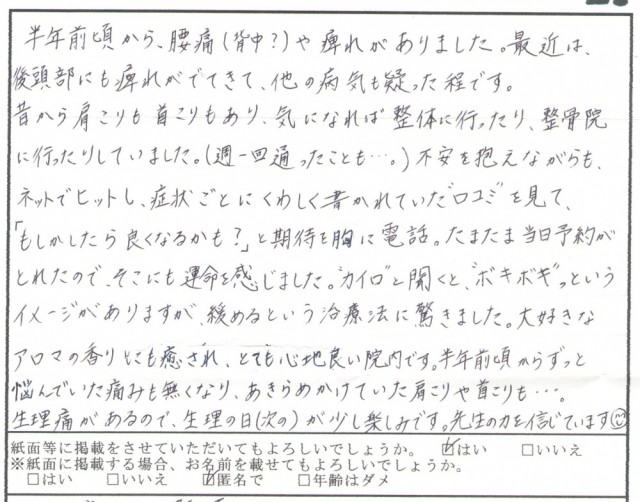 半年前頃から、腰痛(背中?)や痺れがありました。最近は、
後頭部にも痺れがでてきて、他の病気も疑った程です。
昔から肩こりも首こりもあり、気になれば整体に行ったり、整骨院
に行ったりしていました。(週一回通ったことも…。)不安を抱えながらも、
ネットでヒットし、症状ごとにくわしく書かれていた"口コミ"を見て、
「もしかしたら良くなるかも?」と期待を胸に電話。たまたま当日予約が
とれたので、そこにも運命を感じました。"カイロ"と聞くと、"ボキボキ"っという
イメージがありますが、緩めるという治療法に驚きました。大好きな
アロマの香りにも癒され、とても心地良い院内です。半年前頃からずっと
悩んでいた痛みも無くなり、あきらめかけていた肩こりや首こりも…。
生理痛があるので、生理の日(次の)が少し楽しみです。先生の力を信じています☺
紙面等に掲載をさせていただいてもよろしいでしょうか。 ☑はい □いいえ
※紙面に掲載する場合、お名前を載せてもよろしいでしょうか。
□はい □いいえ ☑匿名で □年齢はダメ